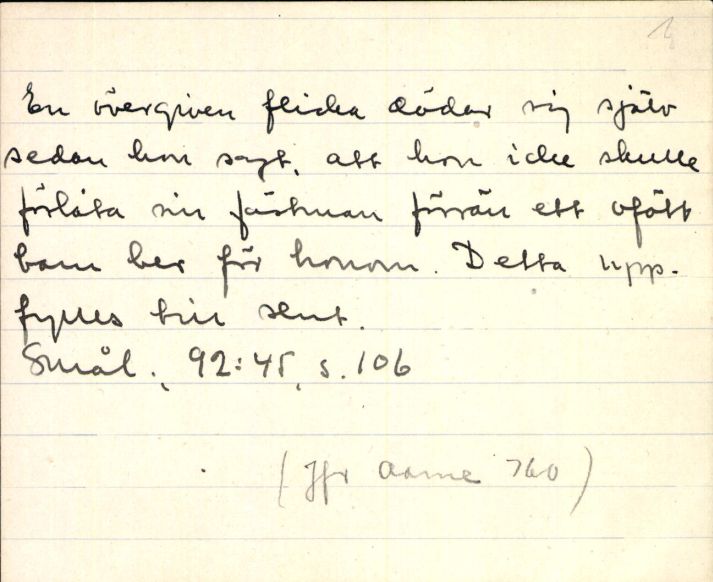 En övergiven flicka dödar sig själv
sedan hon sagt, att hon icke skulle
förlåta sin fästman förrän ett ofött
barn ber för honom. Detta upp-
fylles till slut.
Smål., 92:45, s. 106
(Jfr Aarne 760)